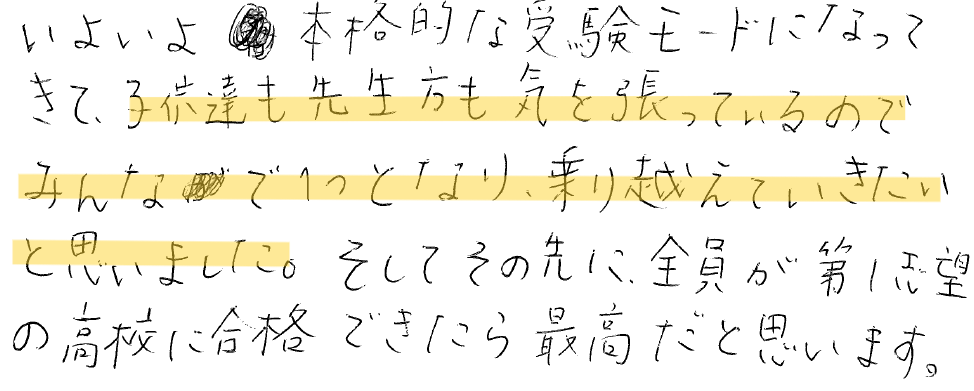 いよいよ 本格的な受験モードになって
きて、子供達も先生方も気を張っているので
みんなで1つとなり、乗り越えていきたい
と思いました。そしてその先に、全員が第1志望
の高校に合格できたら最高だと思います。